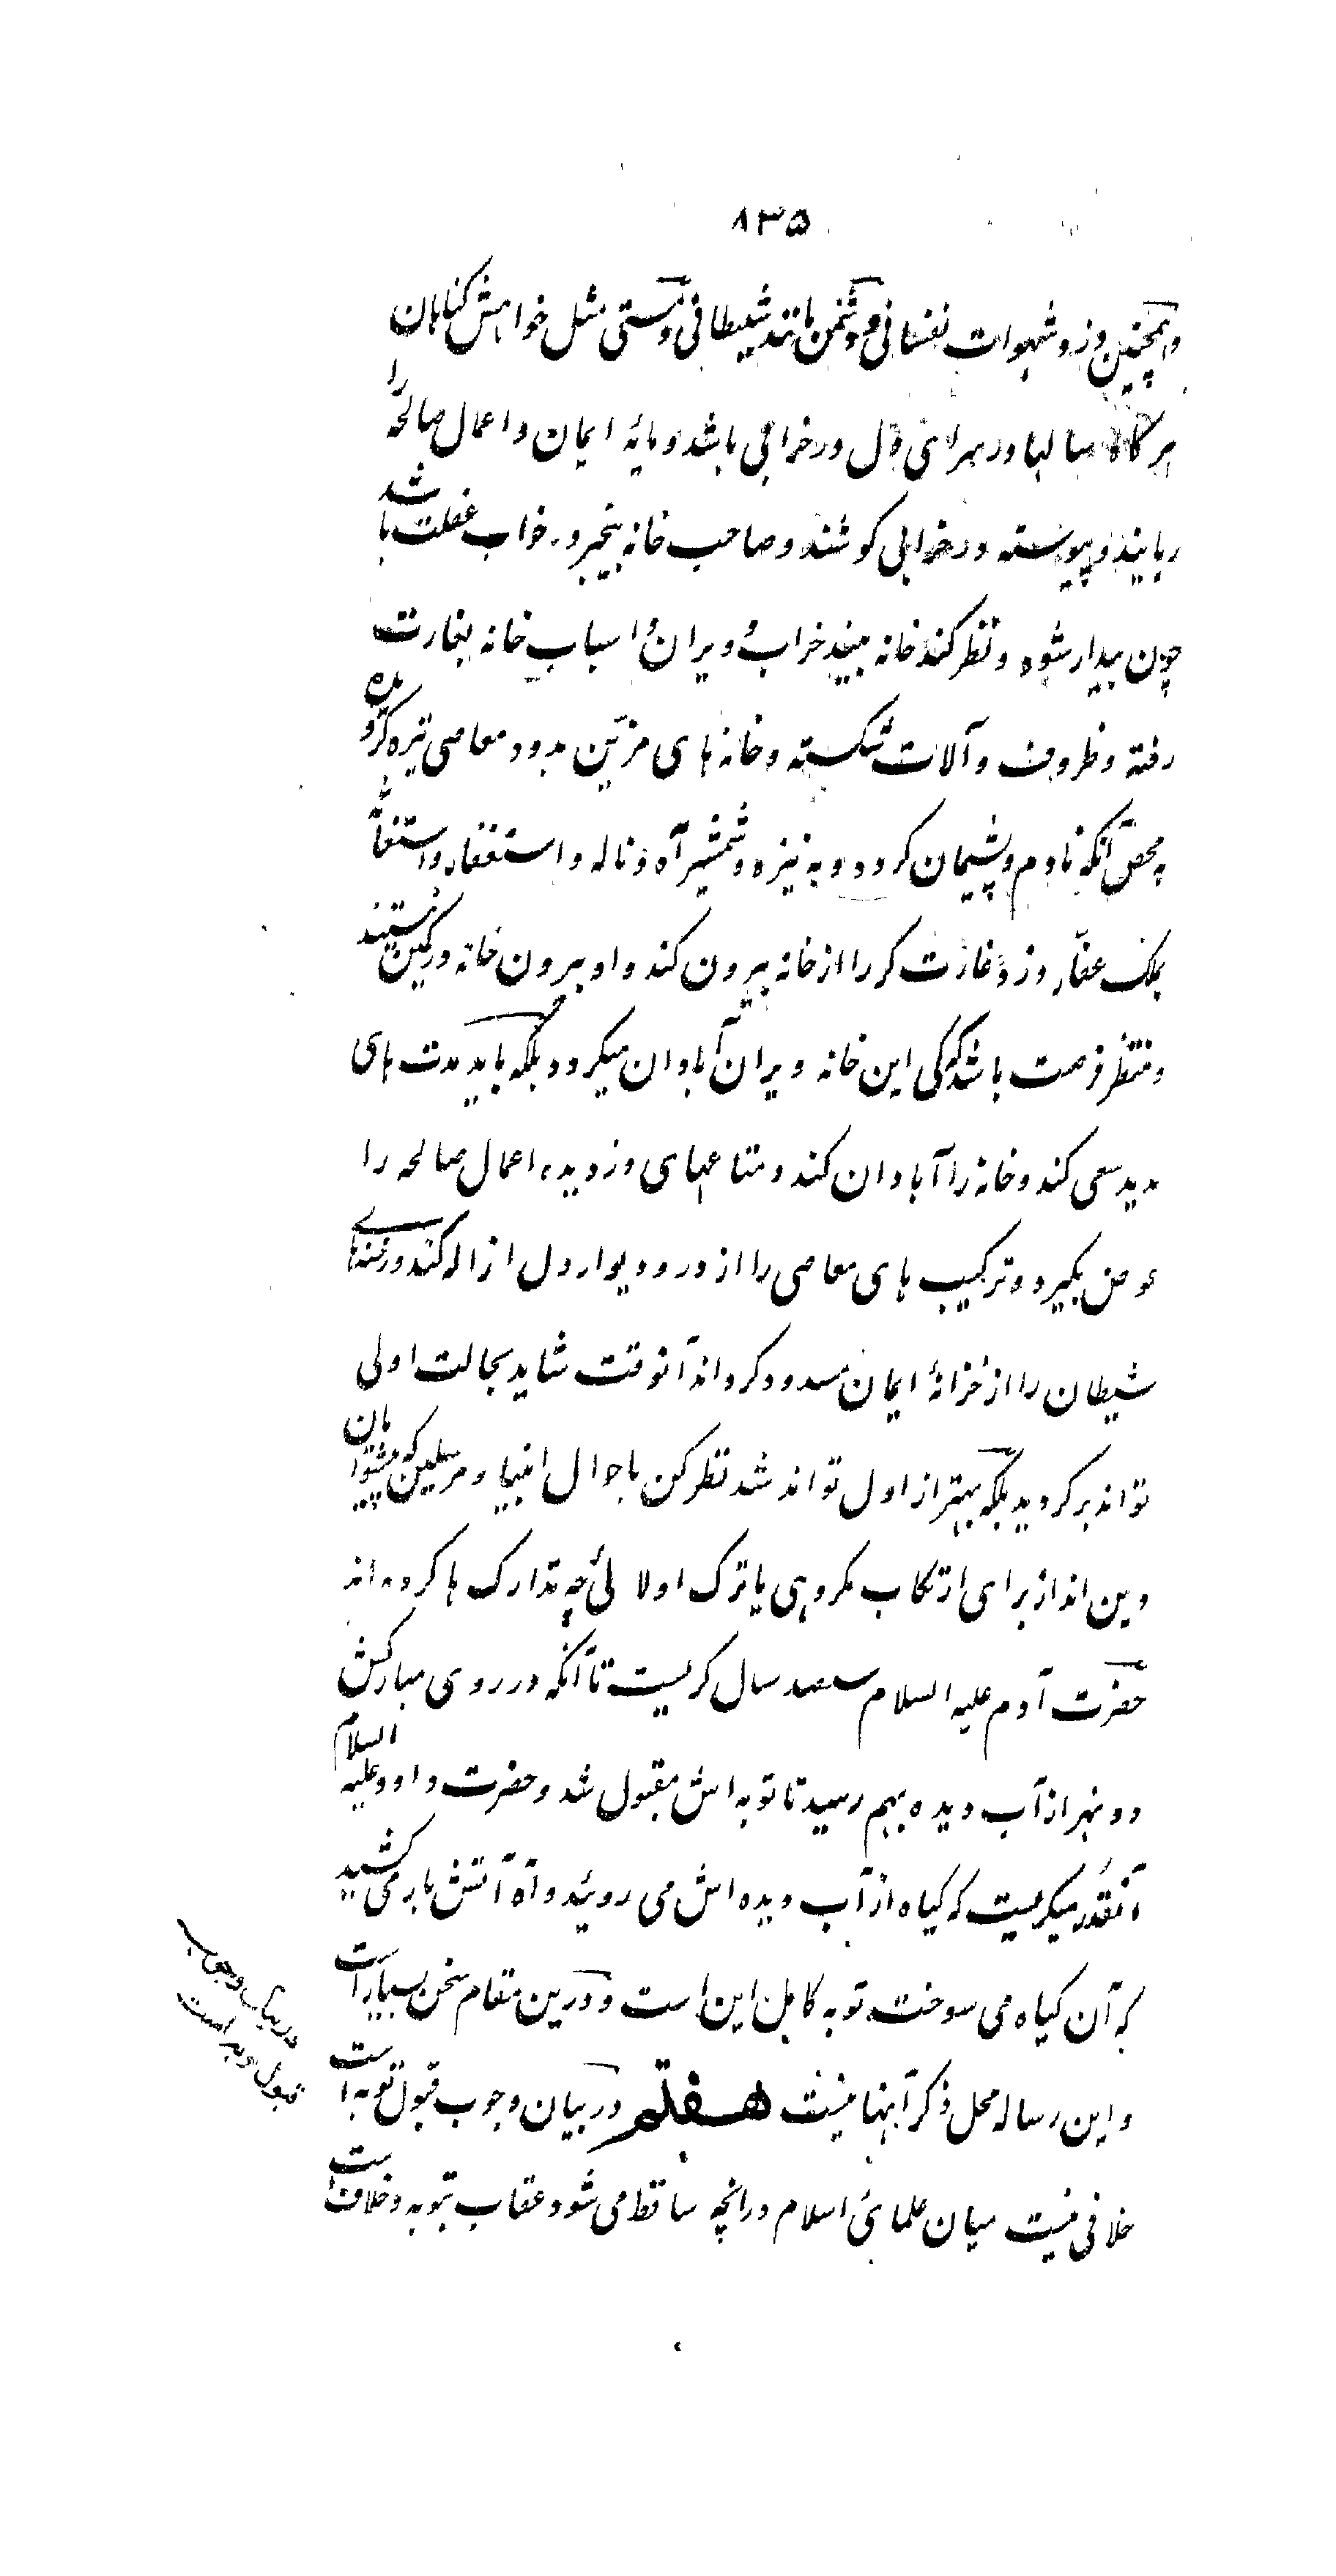 ۸۳۵
و همچنین دزد شهوات نفسانی و دشمن مانند شیطانی و مستی مثل خواهش گناهان
هرگاه سالها در سرای دل در خرابی باشد و مایهٔ ایمان و اعمال صالحه را
ربایند و پیوسته در خرابی کوشند و صاحب خانه بیخبر در خواب غفلت باشد
چون بیدار شود و نظر کند خانه بیند خراب و ویران و اسباب خانه بغارت
رفته و ظروف و آلات شکسته و خانه های مزیّن بدود معاصی تیره گردیده
به محض آنکه نادم و پشیمان گردد و به نیزه و شمشیر آه و ناله و استغفار و استغاثه
بملک غفّار دزد غارت گر را از خانه بیرون کند و او بیرون خانه در کمین نشیند
و منتظر فرصت باشد کی این خانه ویران آبادان میگردد بلکه باید مدت های
مدید سعی کند و خانه را آبادان کند و متاعهای دزدیده اعمال صالحه را
عوض بگیرد و ترکیب های معاصی را از در و دیوار دل ازاله کند و رخنهای
شیطان را از خزانهٔ ایمان مسدود گرداند آنوقت شاید بحالت اولی
تواند برگردید بلکه بهتر از اول تواند شد نظر کن باحوال انبیا و مرسلین که پیشوایان
دین اند از برای ارتکاب مکروهی یا ترک اولائی چه تدارک ها کرده اند
حضرت آدم علیه السلام سصد سال گریست تا آنکه در روی مبارکش
دو نهر از آب دیده بهم رسید تا توبه اش مقبول شد و حضرت داود علیه السلام
آنقدر میگریست که گیاه از آب دیده اش می روئید و آه آتش بار می کشید
که آن گیاه می سوخت توبه کامل این است و درین مقام سخن بسیار است
و این رساله محل ذکر آنها نیست هفتم در بیان وجوب قبول توبه است
خلافی نیست میان علمائی اسلام درانچه ساقط می شود عقاب بتوبه و خلاف است
در بیان وجوب
قبول توبه است